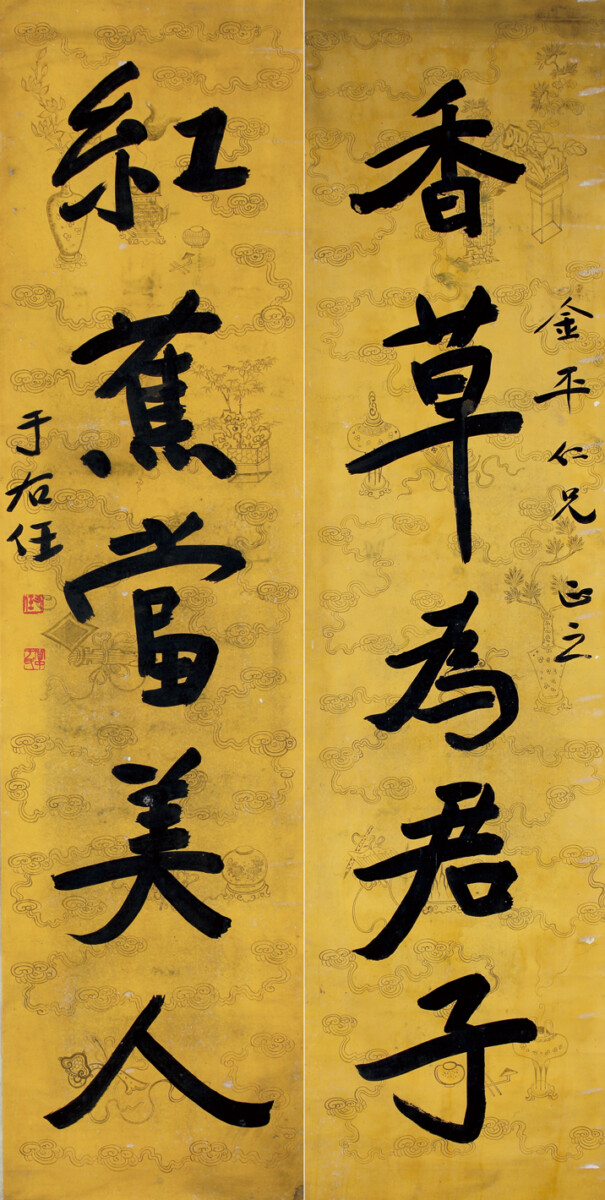 金平仁兄 正之
香草為君子
紅蕉當美人
于右任